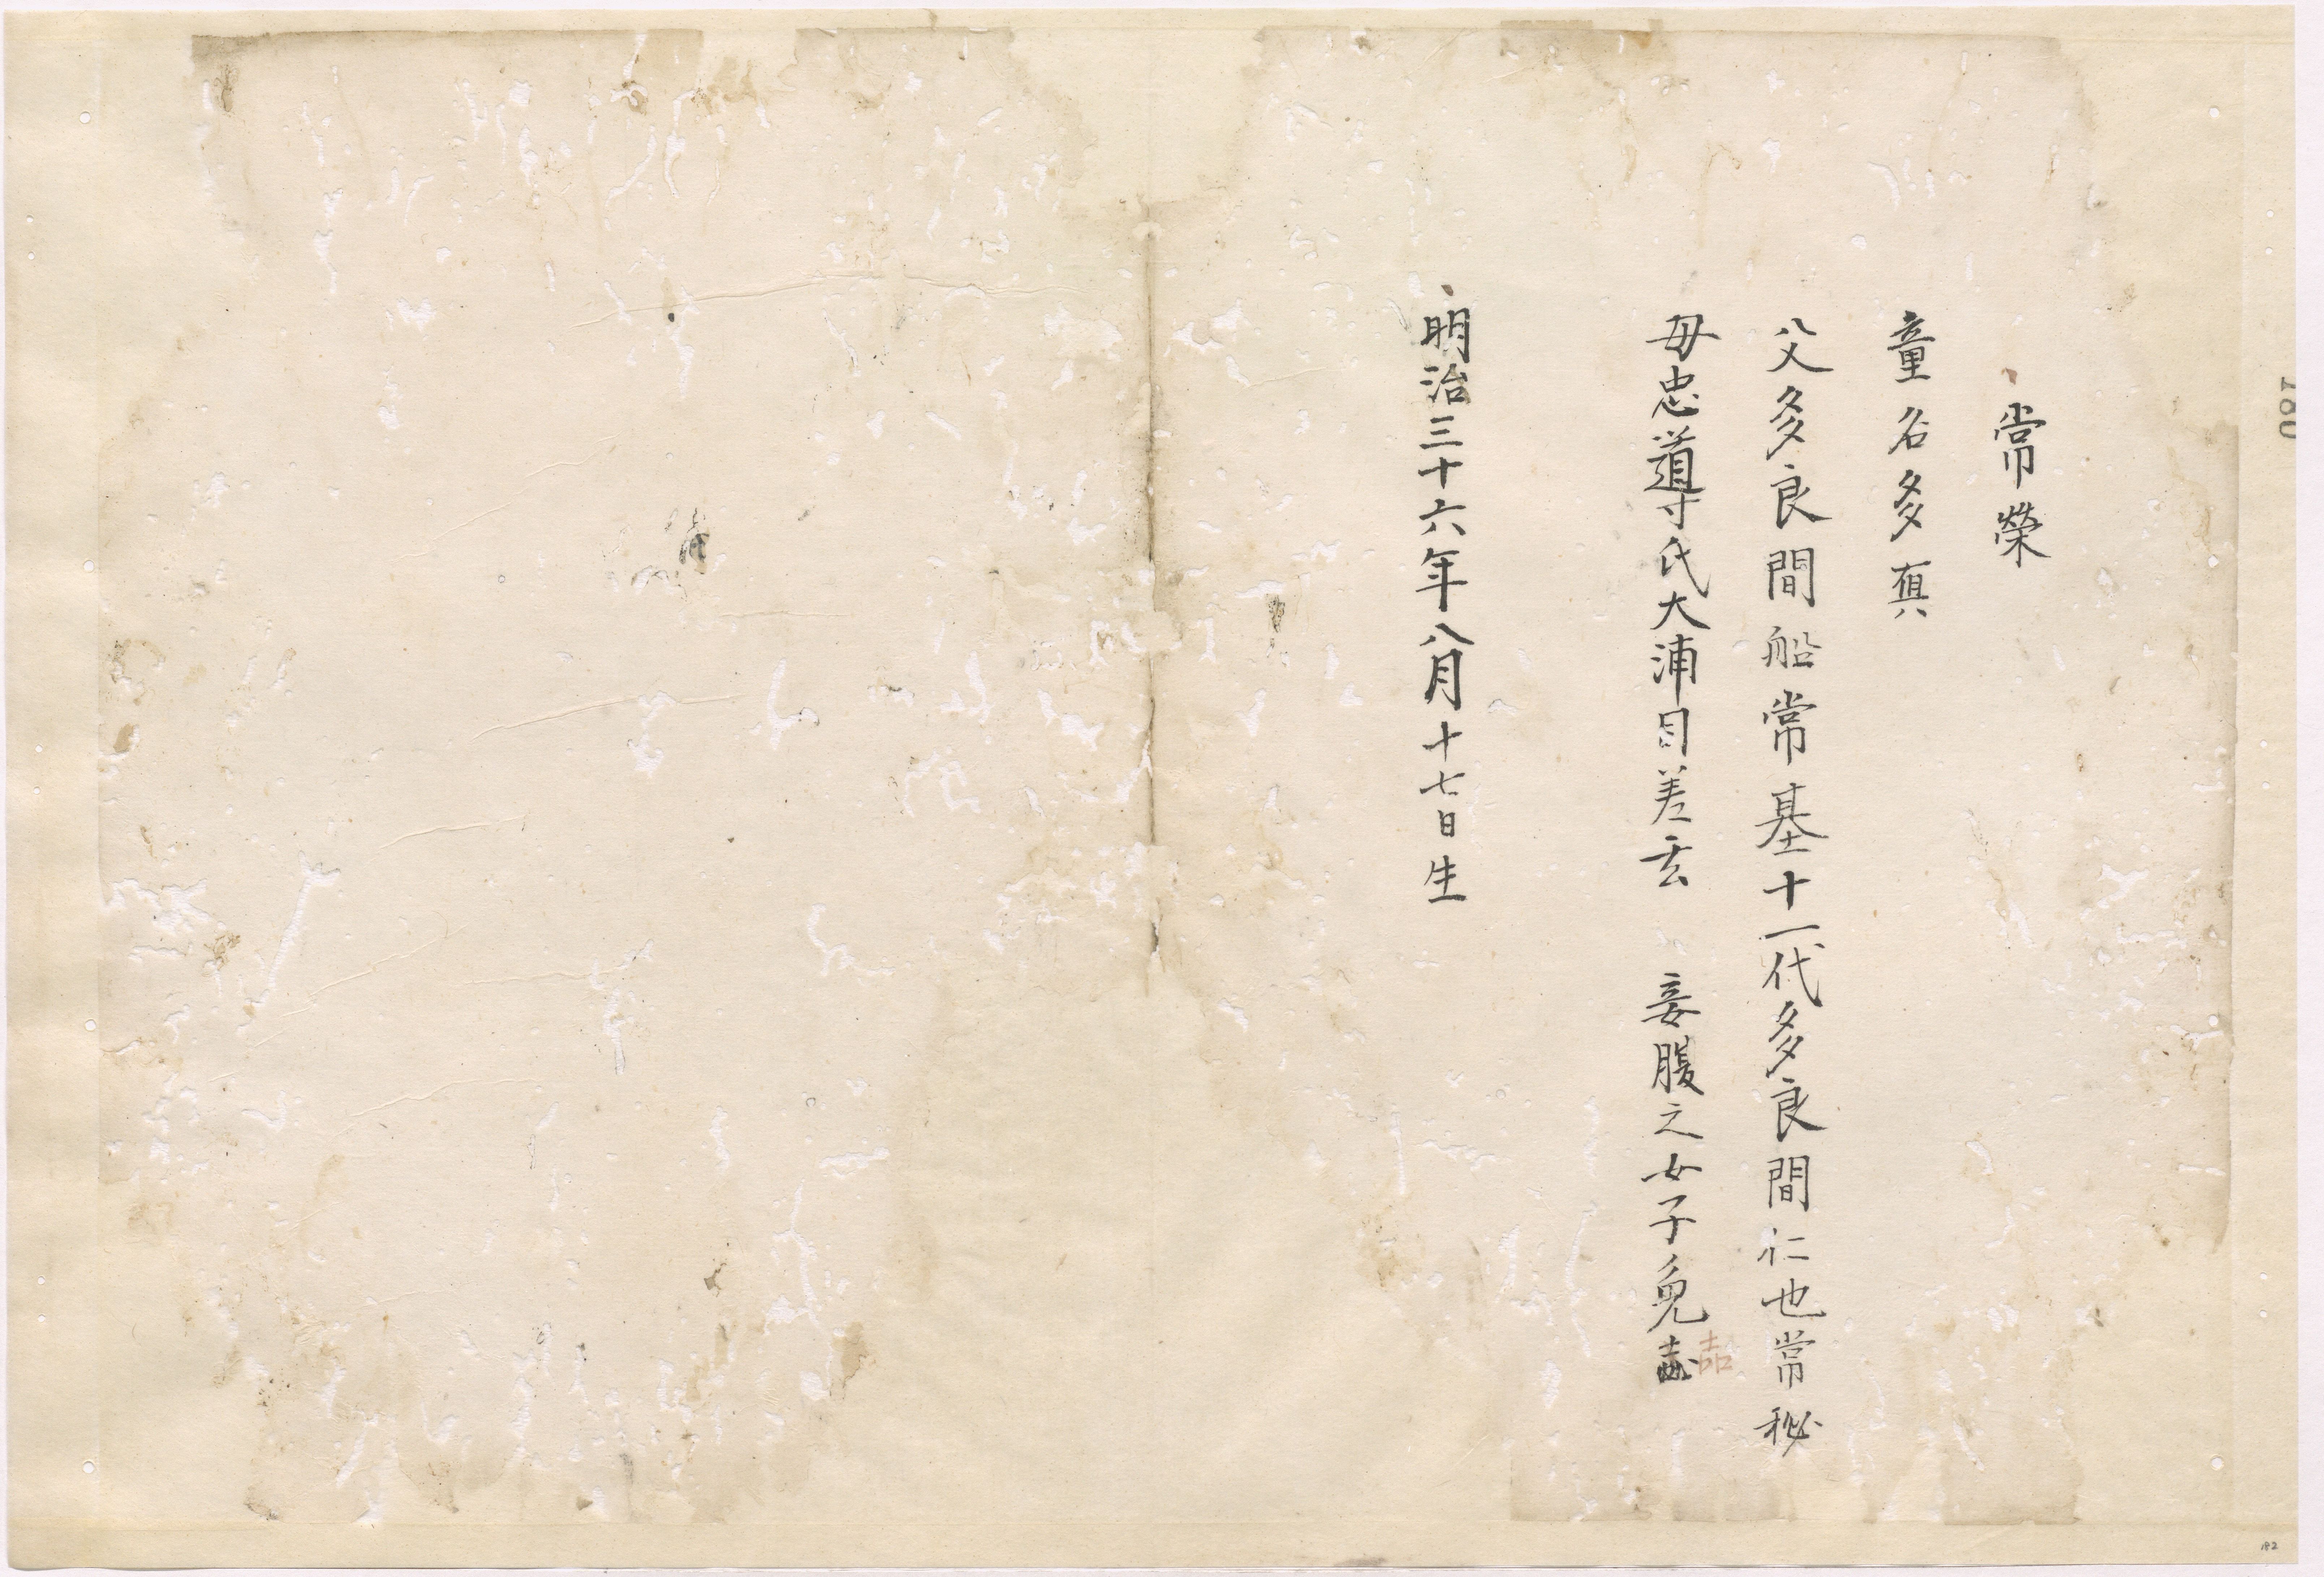 常榮
童名多真
父多良間船常基十一代多良間仁也常秘
母忠導氏大浦目差玄 妾腹之女子免嘉
明治三十六年八月十七日生
180
182